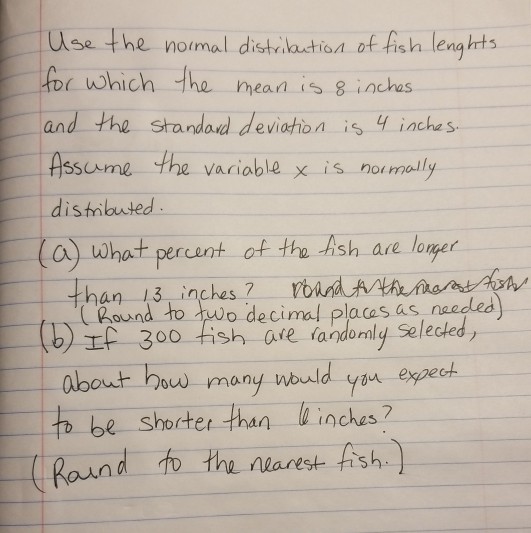 Use the normal distribution of fish lenghts
for which the mean is 8 inches
and the standard deviation is 4 inches.
Assume the variable x is normally
distributed.
(a) What percent of the fish are longer
than 13 inches? round to the nearest fish
(Round to two decimal places as needed)
(b) If 300 fish are randomly selected,
about how many would you expect
to be shorter than 6 inches?
(Round to the nearest fish.)